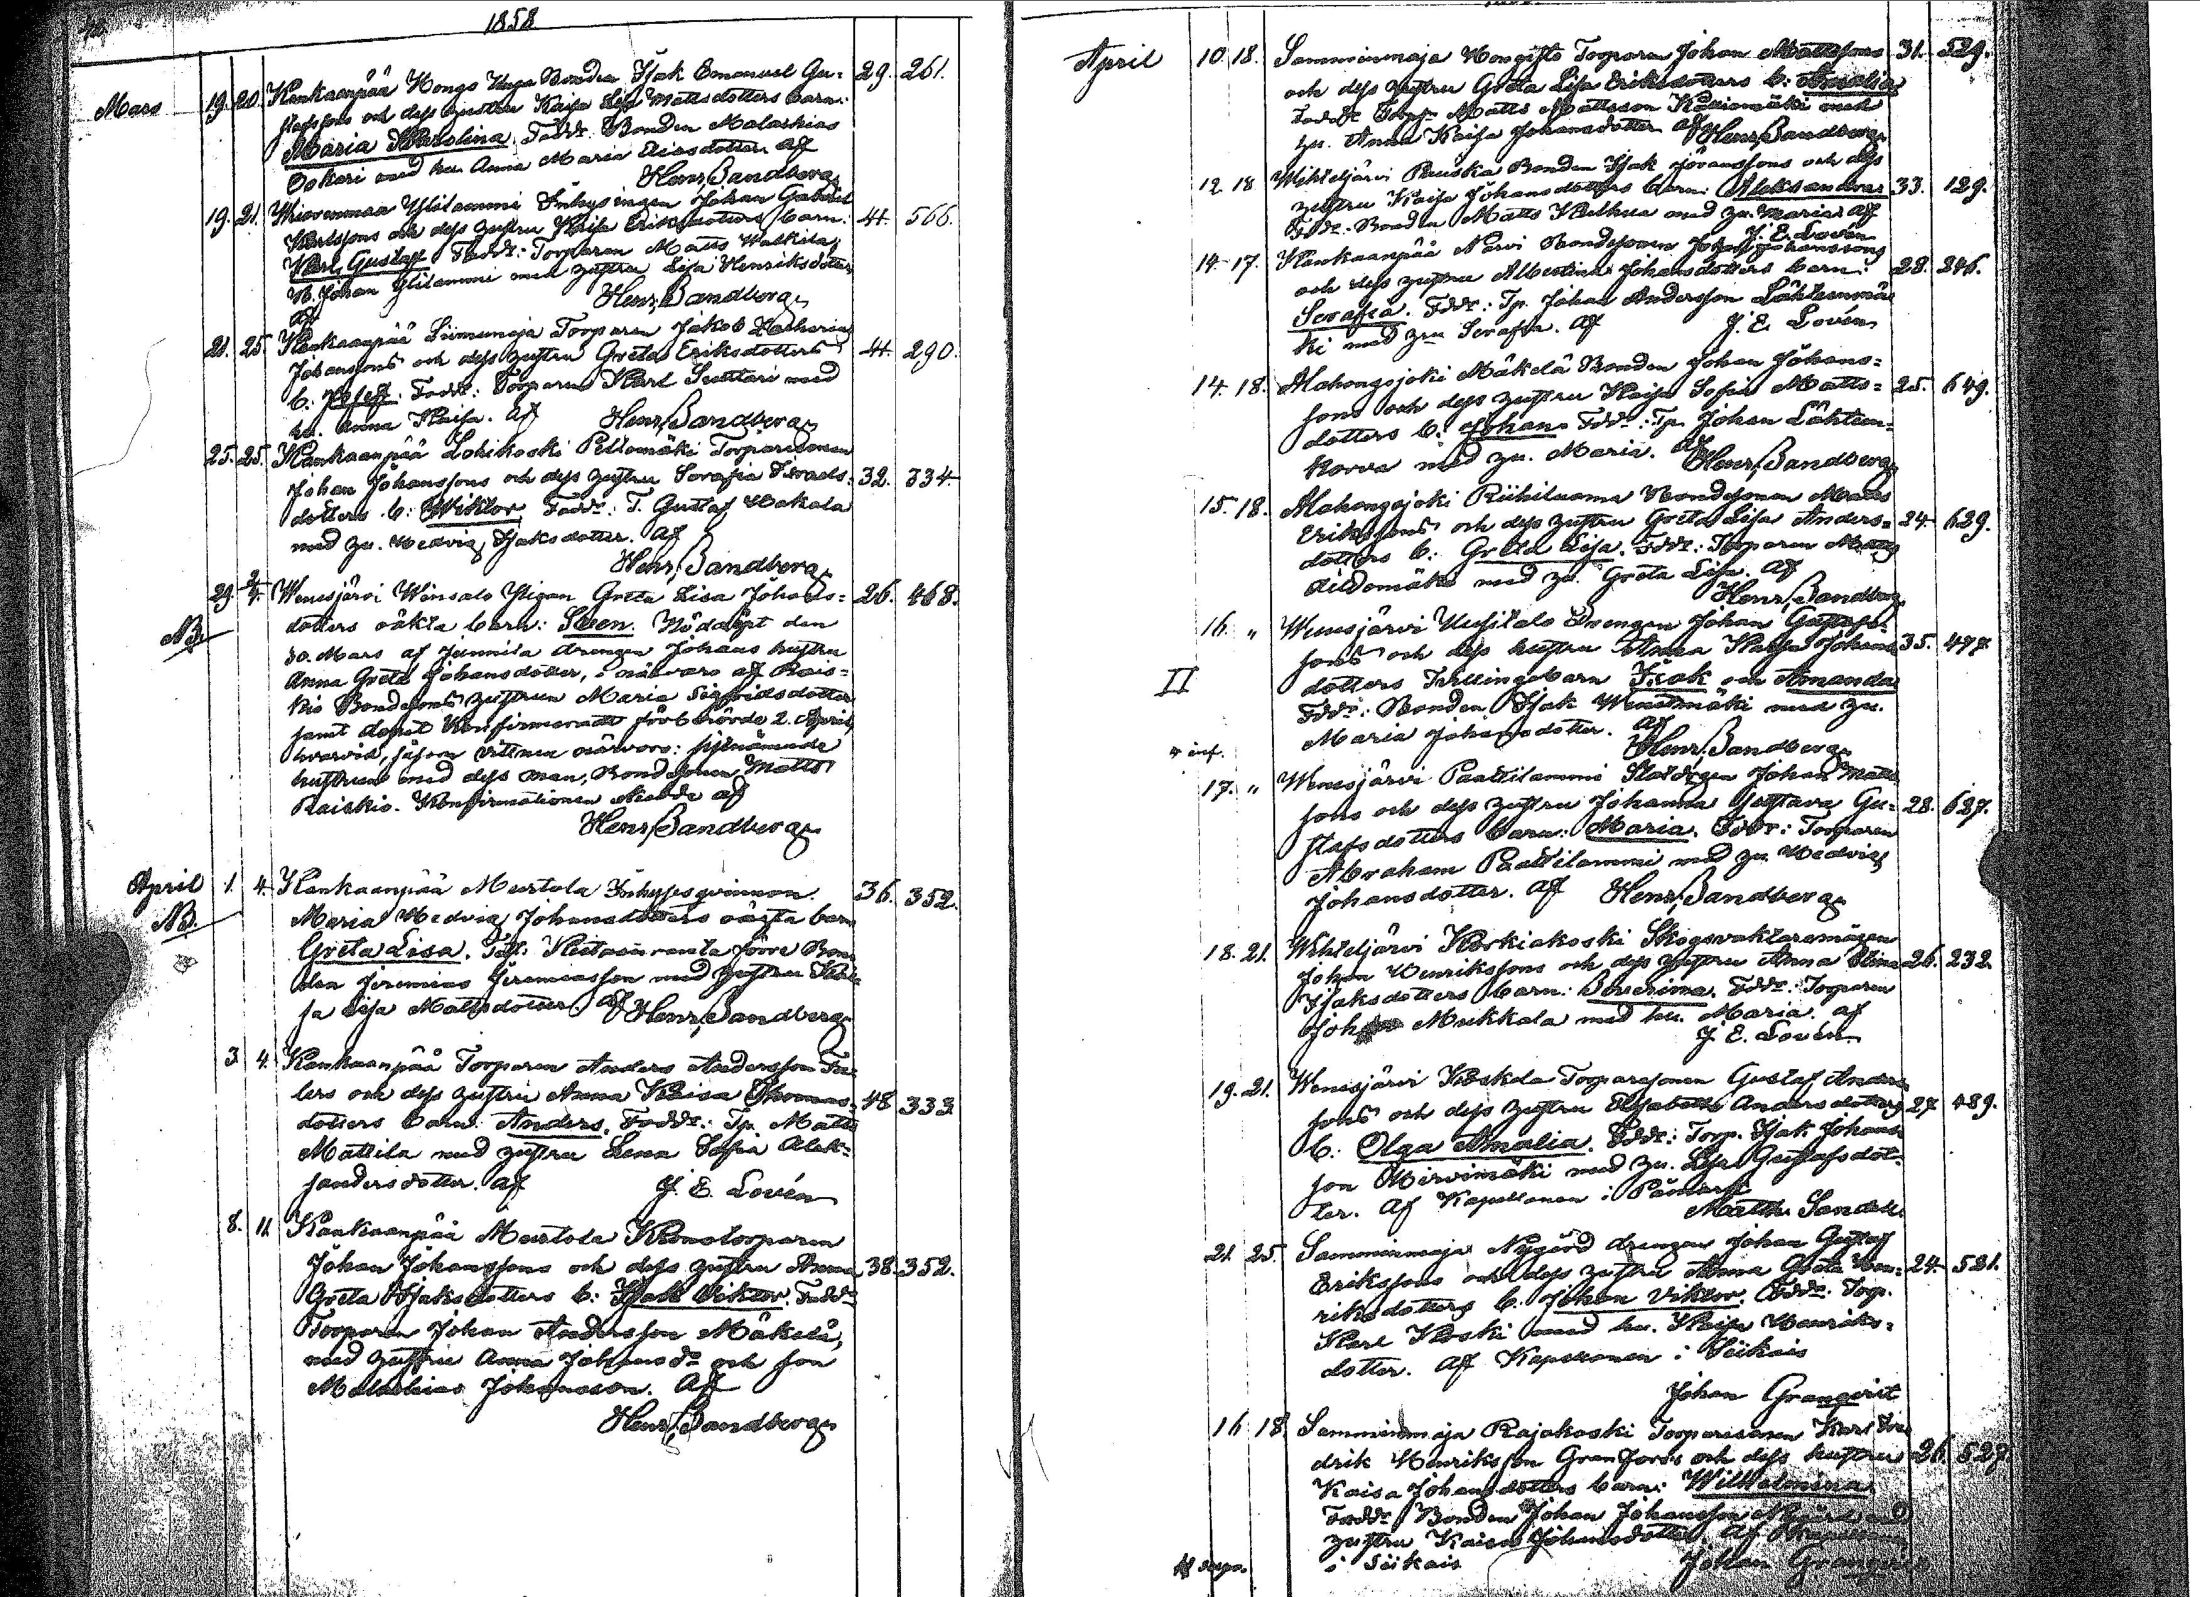 1858
Mars 19. 20. Kankaanpää Hongo Unga Bonden Isak Emanuel Gu- 29. 261.
stafssons och dess hustru Kaisa Lisa Mattsdotters barn:
Maria Karolina. Faddr: Bonden Malachias
med hu. Anna Maria Eliasdotter. Af
Henr. Sandberg
19. 21. Ylilammi Inhysingen Johan Gabriel
Karlssons och dess hustru Kaisa Eriksdotters barn: 41. 566.
Karl Gustaf. Faddr: Torparen Matts
Johan Ylilammi med hustru Lisa Henriksdotter
Af
Henr. Sandberg
21. 25. Kankaanpää Torparen Jakob Zacharias
Johanssons och dess hustru Greta Eriksdotters 41. 290.
b. Josef. Faddr: Torparen Karl Suttari med
hu. Anna Kaisa. Af Henr. Sandberg
25. 25. Kankaanpää Lohikoski Peltomäki Torparesonen
Johan Johanssons och dess hustru Serafia Israels- 32. 334.
dotters b: Wiktor. Faddr: T. Gustaf Hakala
med hu. Hedvig Isaksdotter. Af
Henr. Sandberg
29. 2/4. Wenesjärvi Winsalo Pigan Greta Lisa Johans- 26. 468.
NB. dotters oäkta barn: Sven. Nöddöpt den
30. Mars af Junnila drengen Johans hustru
Anna Greta Johansdotter, i närvaro af Rais-
kio Bondesons hustrun Maria Sigfridsdotter
samt dopet Konfirmeradt förberörde 2. April,
hvarvid, såsom vittnen närvoro: sistnämnde
hustrun med dess man, Bondesonen Matts
Raiskio. Konfirmationen skedde af
Henr. Sandberg
April 1. 4. Kankaanpää Mertola Inhysesqvinnan 36. 352.
NB. Maria Hedvig Johansdotters oägta barn
Greta Lisa. förre Bon-
den Jeremias Jeremiasson med hustru Kai-
sa Lisa Mattsdotter. Af Henr. Sandberg
3. 4. Kankaanpää Torparen Anders Andersson
lers och dess hustru Anna Kaisa Thomas- 48 333.
dotters barn: Anders. Faddr: Tp. Matts
Mattila med hustru Lena Sofia Alek-
sandersdotter. Af J. E. Lovén
8. 11. Kankaanpää Mertola Kronotorparen
Johan Johanssons och dess hustru Anna 38. 352.
Greta Isaksdotters b: Isak Viktor. Faddr:
Torparen Johan Andersson Mäkelä,
med hustru Anna Johansdr och son
Malachias Johansson. Af
Henr. Sandberg
April 10. 18. Samminmaja Hongisto Torparen Johan Mattssons 31. 529.
och dess hustru Greta Lisa Eriksdotters b: Amalia
Faddr: Torp. Matts Mattsson Kalliomäki med
hu. Anna Kaisa Johansdotter Af Henr. Sandberg
12 18 Wihteljärvi Bonden Isak Göranssons och dess
hustru Kaisa Johansdotters barn: Aleksandra 33. 129.
Fddr: Bonden Matts med hu. Maria. Af
J. E. Lovén
14. 17. Kankaanpää Narvi Bondesonen Josef Johanssons
och dess hustru Albertina Johansdotters barn: 28. 246.
Serafia. Fddr: Tp. Johan Andersson Lähteenmä-
ki med hu Serafia. Af J. E. Lovén
14. 18. Alahongojoki Mäkelä Bonden Johan Johans-
sons och dess hustru Kaisa Sofia Matts- 25. 649.
dotters b: Johan. Fddr: Tp. Johan Lähteen-
korva med hu. Maria. Af Henr. Sandberg
15. 18. Alahongojoki Riihiluoma Bondesonen Matts
Erikssons och dess hustru Greta Lisa Anders- 24. 629.
dotters b: Greta Lisa. Fddr: Torparen Matts
med hu. Greta Lisa. Af
Henr. Sandberg
16. " Wenesjärvi Uusitalo Drengen Johan Gustafs-
sons och dess hustru Anna Kaisa Johans- 35. 477
II dotters Tvillingebarn Isak och Amanda
Fddr: Bonden Isak med hu.
Maria Johansdotter. Af
Henr. Sandberg
17. " Wenesjärvi Paattilammi Johan Matts-
sons och dess hustru Johanna Gustava Gu- 28. 627.
stafsdotters barn: Maria. Fddr: Torparen
Abraham Paattilammi med hu. Hedvig
Johansdotter. Af Henr. Sandberg
18. 21. Wihteljärvi Korkiakoski Skogsvaktaremågen
Johan Henrikssons och dess hustru Anna Stina 26. 232.
Isaksdotters barn: Severima. Fddr: Torparen
Johan Mukkala med hu. Maria. af
J. E. Lovén
19. 21. Wenesjärvi Koskela Torparesonen Gustaf Anders-
sons och dess hustru Elisabeth Andersdotters 27 489.
b: Olga Amalia. Fddr: Torp. Isak Johans-
son med hu. Lisa Gustafsdot-
ter. Af Kapellanen i Påmark
Matth. Sandell
21. 25. Samminmaja Nygård drengen Johan Gustaf
Erikssons och dess hustru Anna Greta Hen- 24. 521.
riksdotters b. Johan Viktor. Fddr: Torp.
Karl Koski med hu. Kaisa Henriks-
dotter. Af Kapellanen i Siikais
Johan Granqvist
16 18. Samminmaja Rajakoski Torparesonen Karl Fre-
drik Henriksson Granfors's och dess hustru 26. 527
Kaisa Johansdotters barn: Wilhelmina.
Faddr: Bonden Johan Johansson med
hustru Kaisa Johansdotter. Af
i Siikais Johan Granqvist